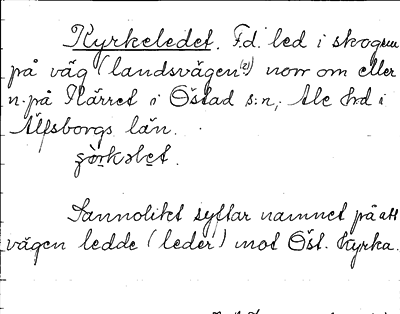 Kyrkeledet. F.d. led i skogen
på väg (landsvägen (2)) norr om eller
n. på Kärret i Östad s:n, Ale hd i
Älfsborgs län.
Sannolikt syftar namnet på att
vägen ledde (leder) mot Öst. Kyrka.